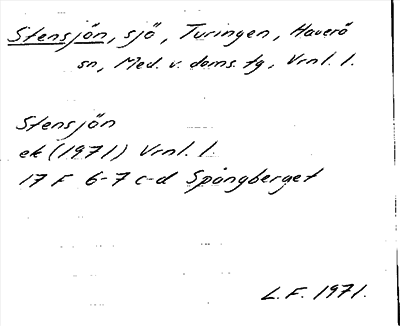 Stensjön, sjö, Turingen, Haverö
sn, Med. v. doms. tg, Vrnl. l.
Stensjön
ek (1971) Vrnl. l.
17 F 6-7 c-d Spångberget
L.F. 1971.